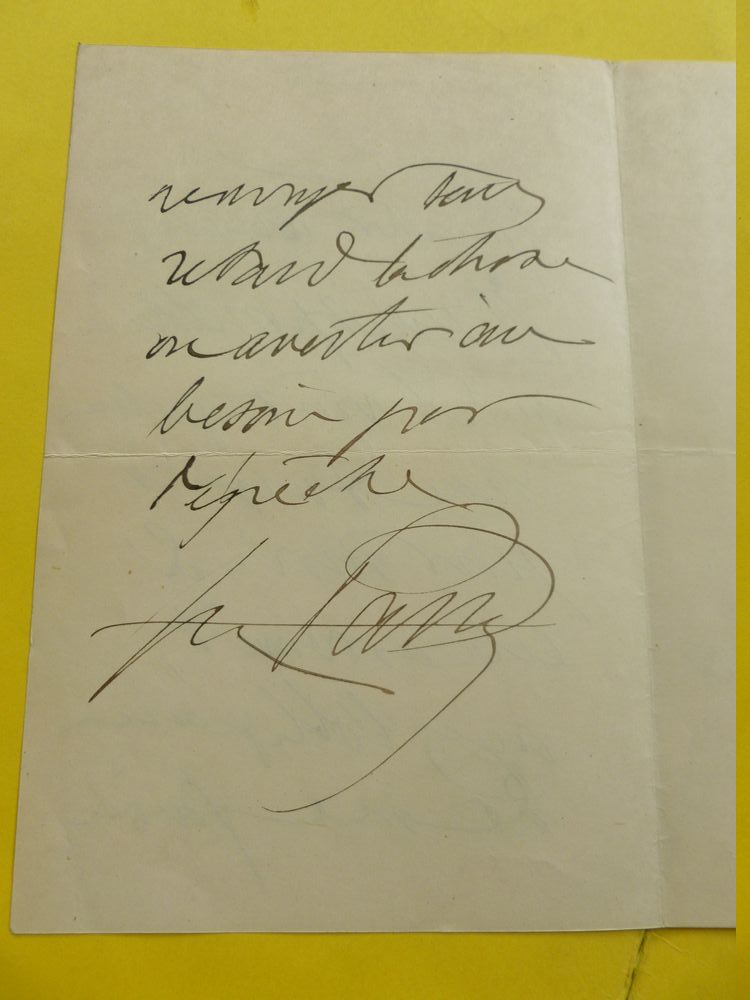 renvoyer sans
retard la chose
on avertir au
besoin par
dépêche